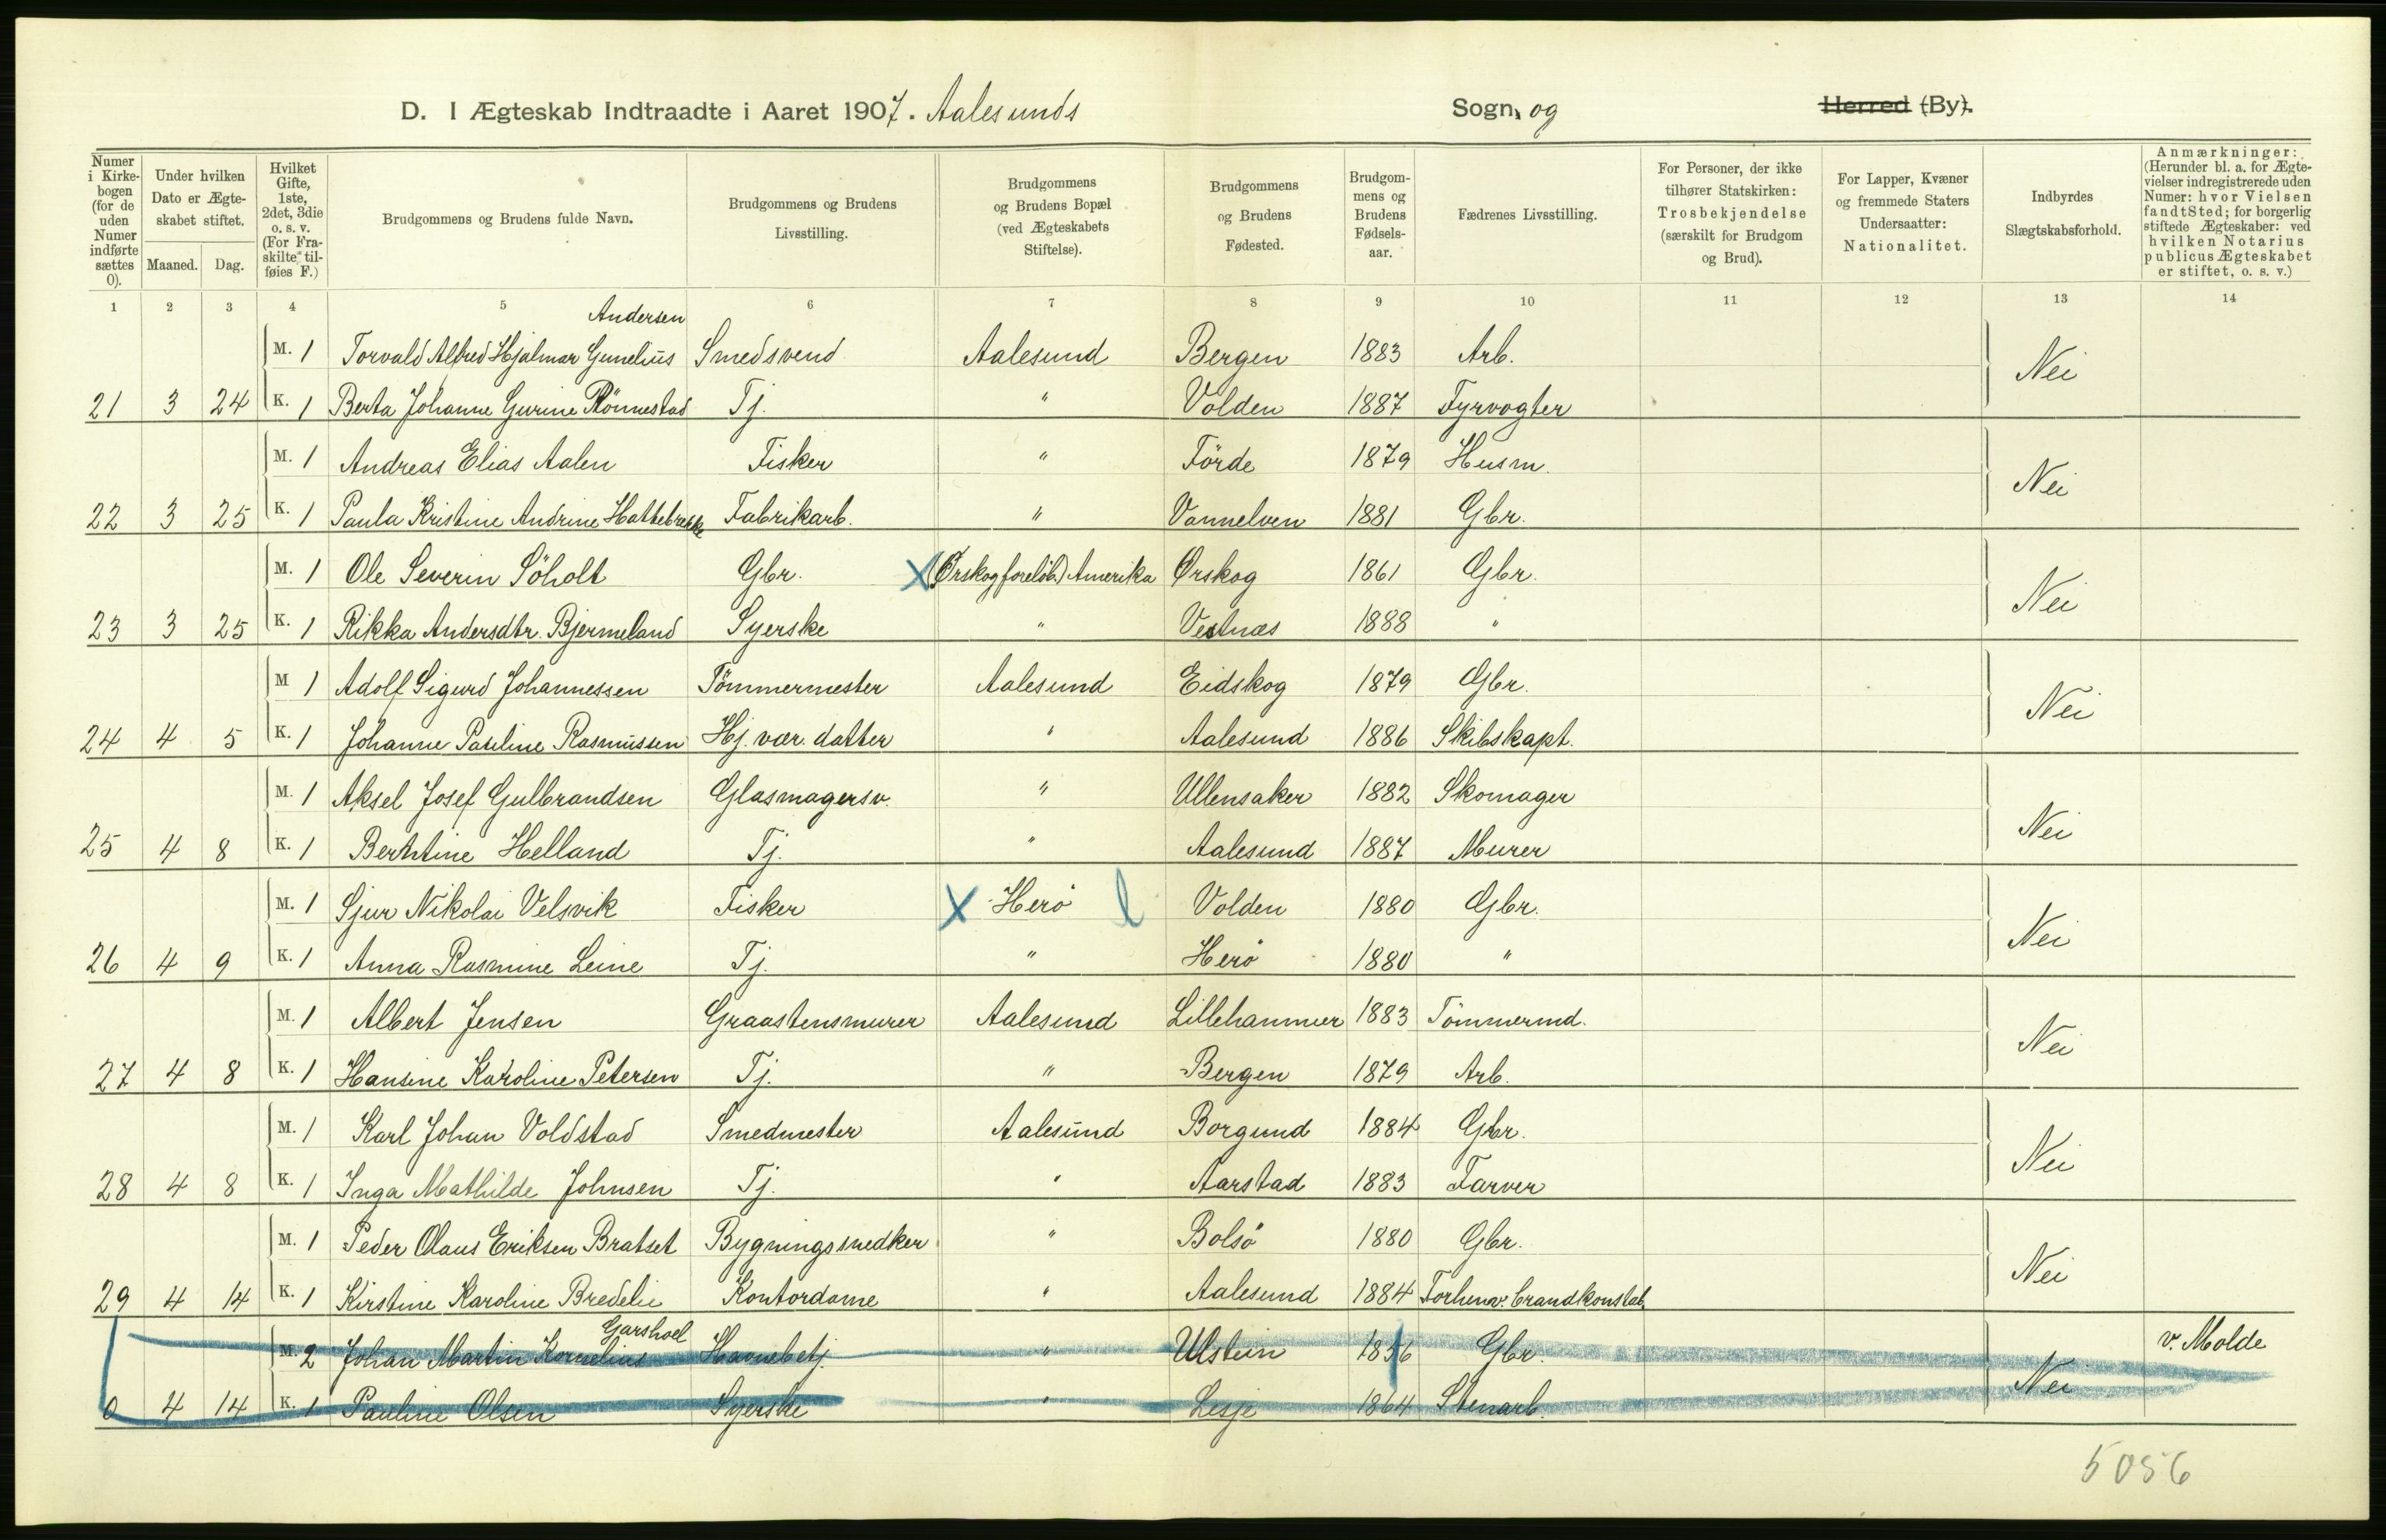 D. I Ægteskab Indtraadte i Aaret 1907. Aalesunds Sogn, og Herred (By).
Numer i Kirkebogen (for de uden Numer indførte sættes 0).
Under hvilken Dato er Ægteskabet stiftet.
Maaned. Dag.
Hvilket Gifte, 1ste, 2det, 3die o. s. v. (For Fraskilte tilføies F.)
Brudgommens og Brudens fulde Navn.
Brudgommens og Brudens Livsstilling.
Brudgommens og Brudens Bopæl (ved Ægteskabets Stiftelse).
Brudgommens og Brudens Fødested.
Brudgommens og Brudens Fødselsaar.
Fædrenes Livsstilling.
For Personer, der ikke tilhører Statskirken: Trosbekjendelse (særskilt for Brudgom og Brud).
For Lapper, Kvæner og fremmede Staters Undersaatter: Nationalitet.
Indbyrdes Slægtskabsforhold.
Anmærkninger: (Herunder bl. a. for Ægtevielser indregistrerede uden Numer: hvor Vielsen fandt Sted; for borgerlig stiftede Ægteskaber: ved hvilken Notarius publicus Ægteskabet er stiftet, o. s. v.)
1 2 3 4 5 6 7 8 9 10 11 12 13 14
Andersen
M. 1 Torvald Alfred Hjalmar Gunelius Smedsvend Aalesund Bergen 1883 Arb. Nei
21 3 24 K. 1 Berta Johanne Gurine Rönnestad Tj. " Volden 1887 Fyrvogter
M. 1 Andreas Elias Aalen Fisker " Förde 1879 Husm. Nei
22 3 25 K. 1 Paula Kristine Andrine Hattebrekke Fabrikarb. " Vannelven 1881 Gbr.
M. 1 Ole Severin Söholt Gbr. X (Ørskog foreløb.) Amerika Ørskog 1861 Gbr. Nei
23 3 25 K. 1 Rikka Andersdtr. Bjermeland Syerske " Vestnæs 1888 "
M 1 Adolf Sigurd Johannessen Tömmermester Aalesund Eidskog 1879 Gbr. Nei
24 4 5 K. 1 Johanne Pauline Rasmussen Hj. vær. datter " Aalesund 1886 Skibskapt.
M. 1 Aksel Josef Gulbrandsen Glasmagersv. " Ullensaker 1882 Skomager Nei
25 4 8 K. 1 Berntine Helland Tj. " Aalesund 1887 Murer
M. 1 Sjur Nikolai Velsvik Fisker X Herö l Volden 1880 Gbr. Nei
26 4 9 K. 1 Anna Rasmine Leine Tj. " Herö 1880 "
M. 1 Albert Jensen Graastensmurer Aalesund Lillehammer 1883 Tömmermd. Nei
27 4 8 K. 1 Hansine Karoline Petersen Tj. " Bergen 1879 Arb.
M. 1 Karl Johan Voldstad Smedmester Aalesund Borgund 1884 Gbr. Nei
28 4 8 K. 1 Inga Mathilde Johnsen Tj. " Aarstad 1883 Farver
M. 1 Peder Olaus Eriksen Bratset Bygningssnedker " Bolsö 1880 Gbr. Nei
29 4 14 K. 1 Kirstine Karoline Bredelie Kontordame " Aalesund 1884 Forhenv. brandkonstab.
Garshoel
M. 2 Johan Martin Kornelius Havnebetj. " Ulstein 1856 Gbr. Nei v. Molde
0 4 14 K. 1 Pauline Olsen Syerske " Lesje 1864 Stenarb.
5056